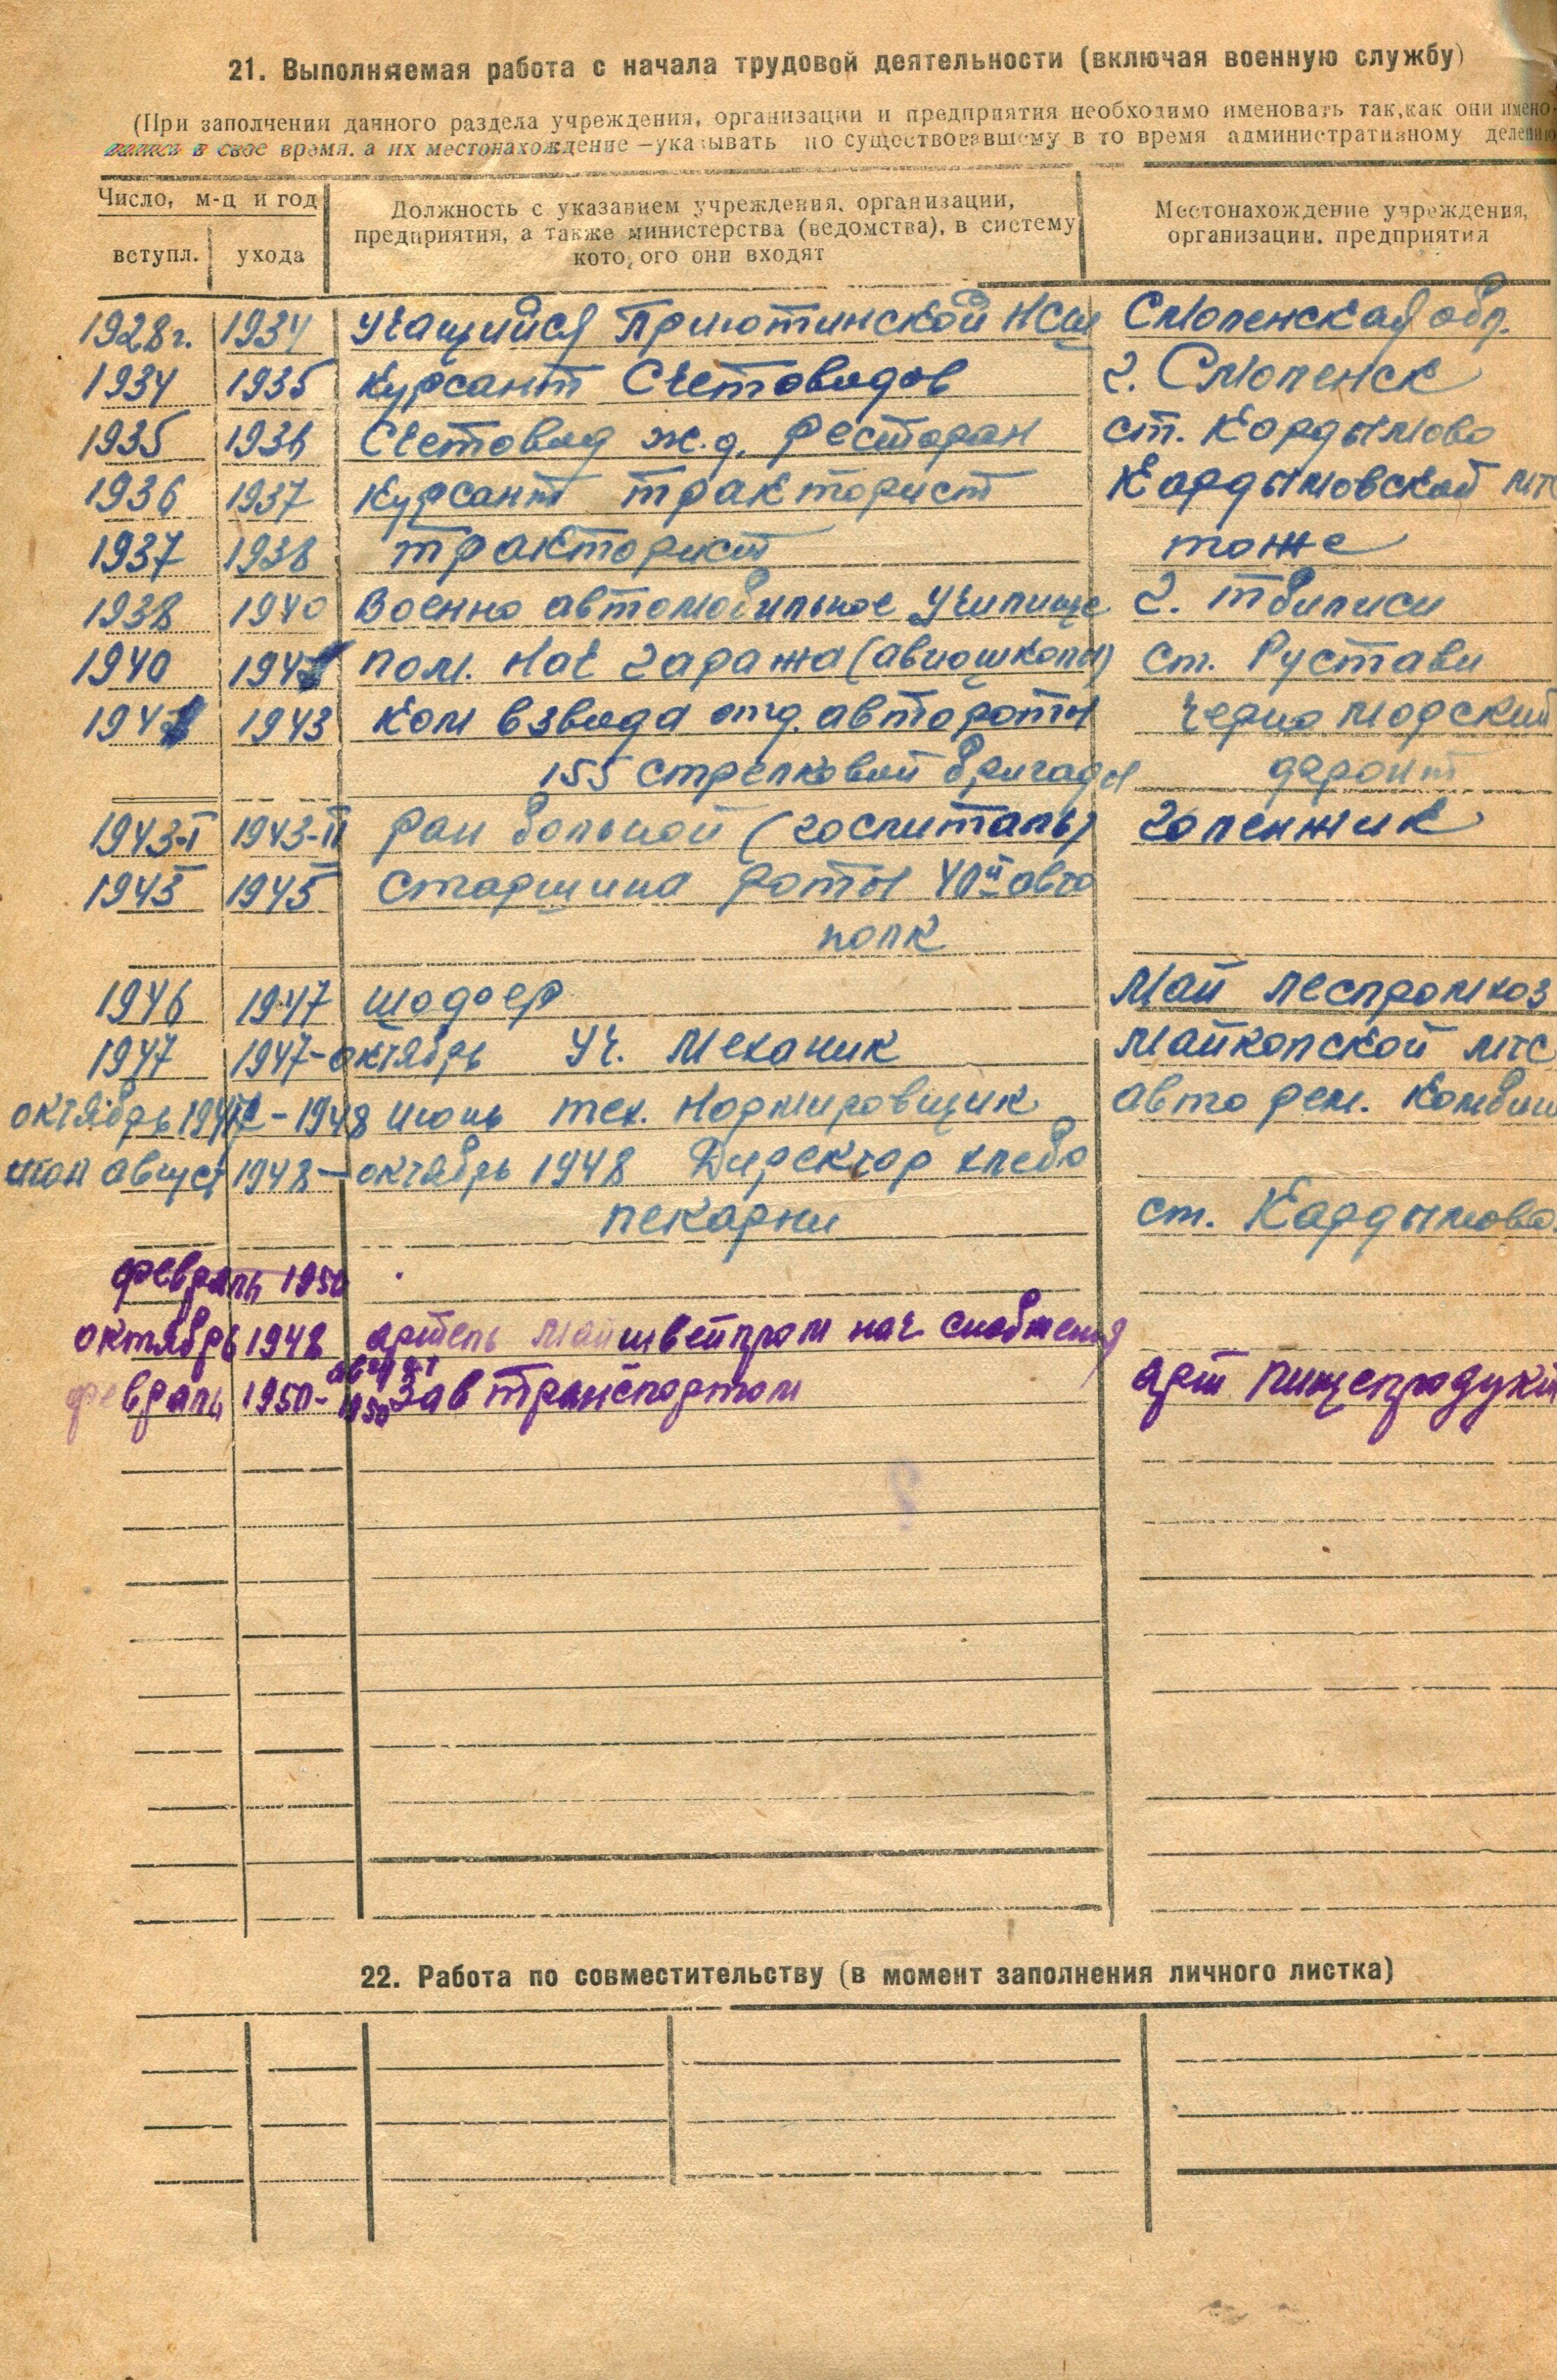 21. Выполняемая работа с начала трудовой деятельности (включая военную службу)
(При заполнении данного раздела учреждения, организации и предприятия необходимо именовать так, как они имено-
вались в свое время, а их местонахождение —указывать по существовавшему в то время административному делению
Число, м-ц и год
вступл. ухода
Должность с указанием учреждения, организации,
предприятия, а также министерства (ведомства), в систему
которого они входят
Местонахождение учреждения,
организации, предприятия
1928г. 1934 Учащийся Приютинской НСШ Смоленская обл.
1934 1935 Курсант Счетоводов г. Смоленск
1935 1936 Счетовод ж.д. ресторан ст. Кардымово
1936 1937 Курсант тракторист Кардымовской мтс
1937 1938 тракторист тоже
1938 1940 Военно автомобильное Училище г. Тбилиси
1940 194 пом. Нач гаража (авиошколы) ст. Рустави
194 1943 Ком взвода отд. автороты Черно морский
155 стрелковой бригады фронт
1943-I 1943-II ран больной (госпиталь) Геленжик
1943 1945 старшина роты авто
полк
1946 1947 шофер Май леспромхоз
1947 1947-октябрь Уч. Механик Майкопской мтс
октябрь 1947 - 1948 июнь тех. Нормировщик авто рем. Комбин
август 1948 - октябрь 1948 Директор хлебо
пекарни ст. Кардымово
февраль 1950
октябрь 1948 артель Майшвейпром нач снабжения
февраль 1950- август 1950 Зав транспортом арт Пищепродукт
22. Работа по совместительству (в момент заполнения личного листка)